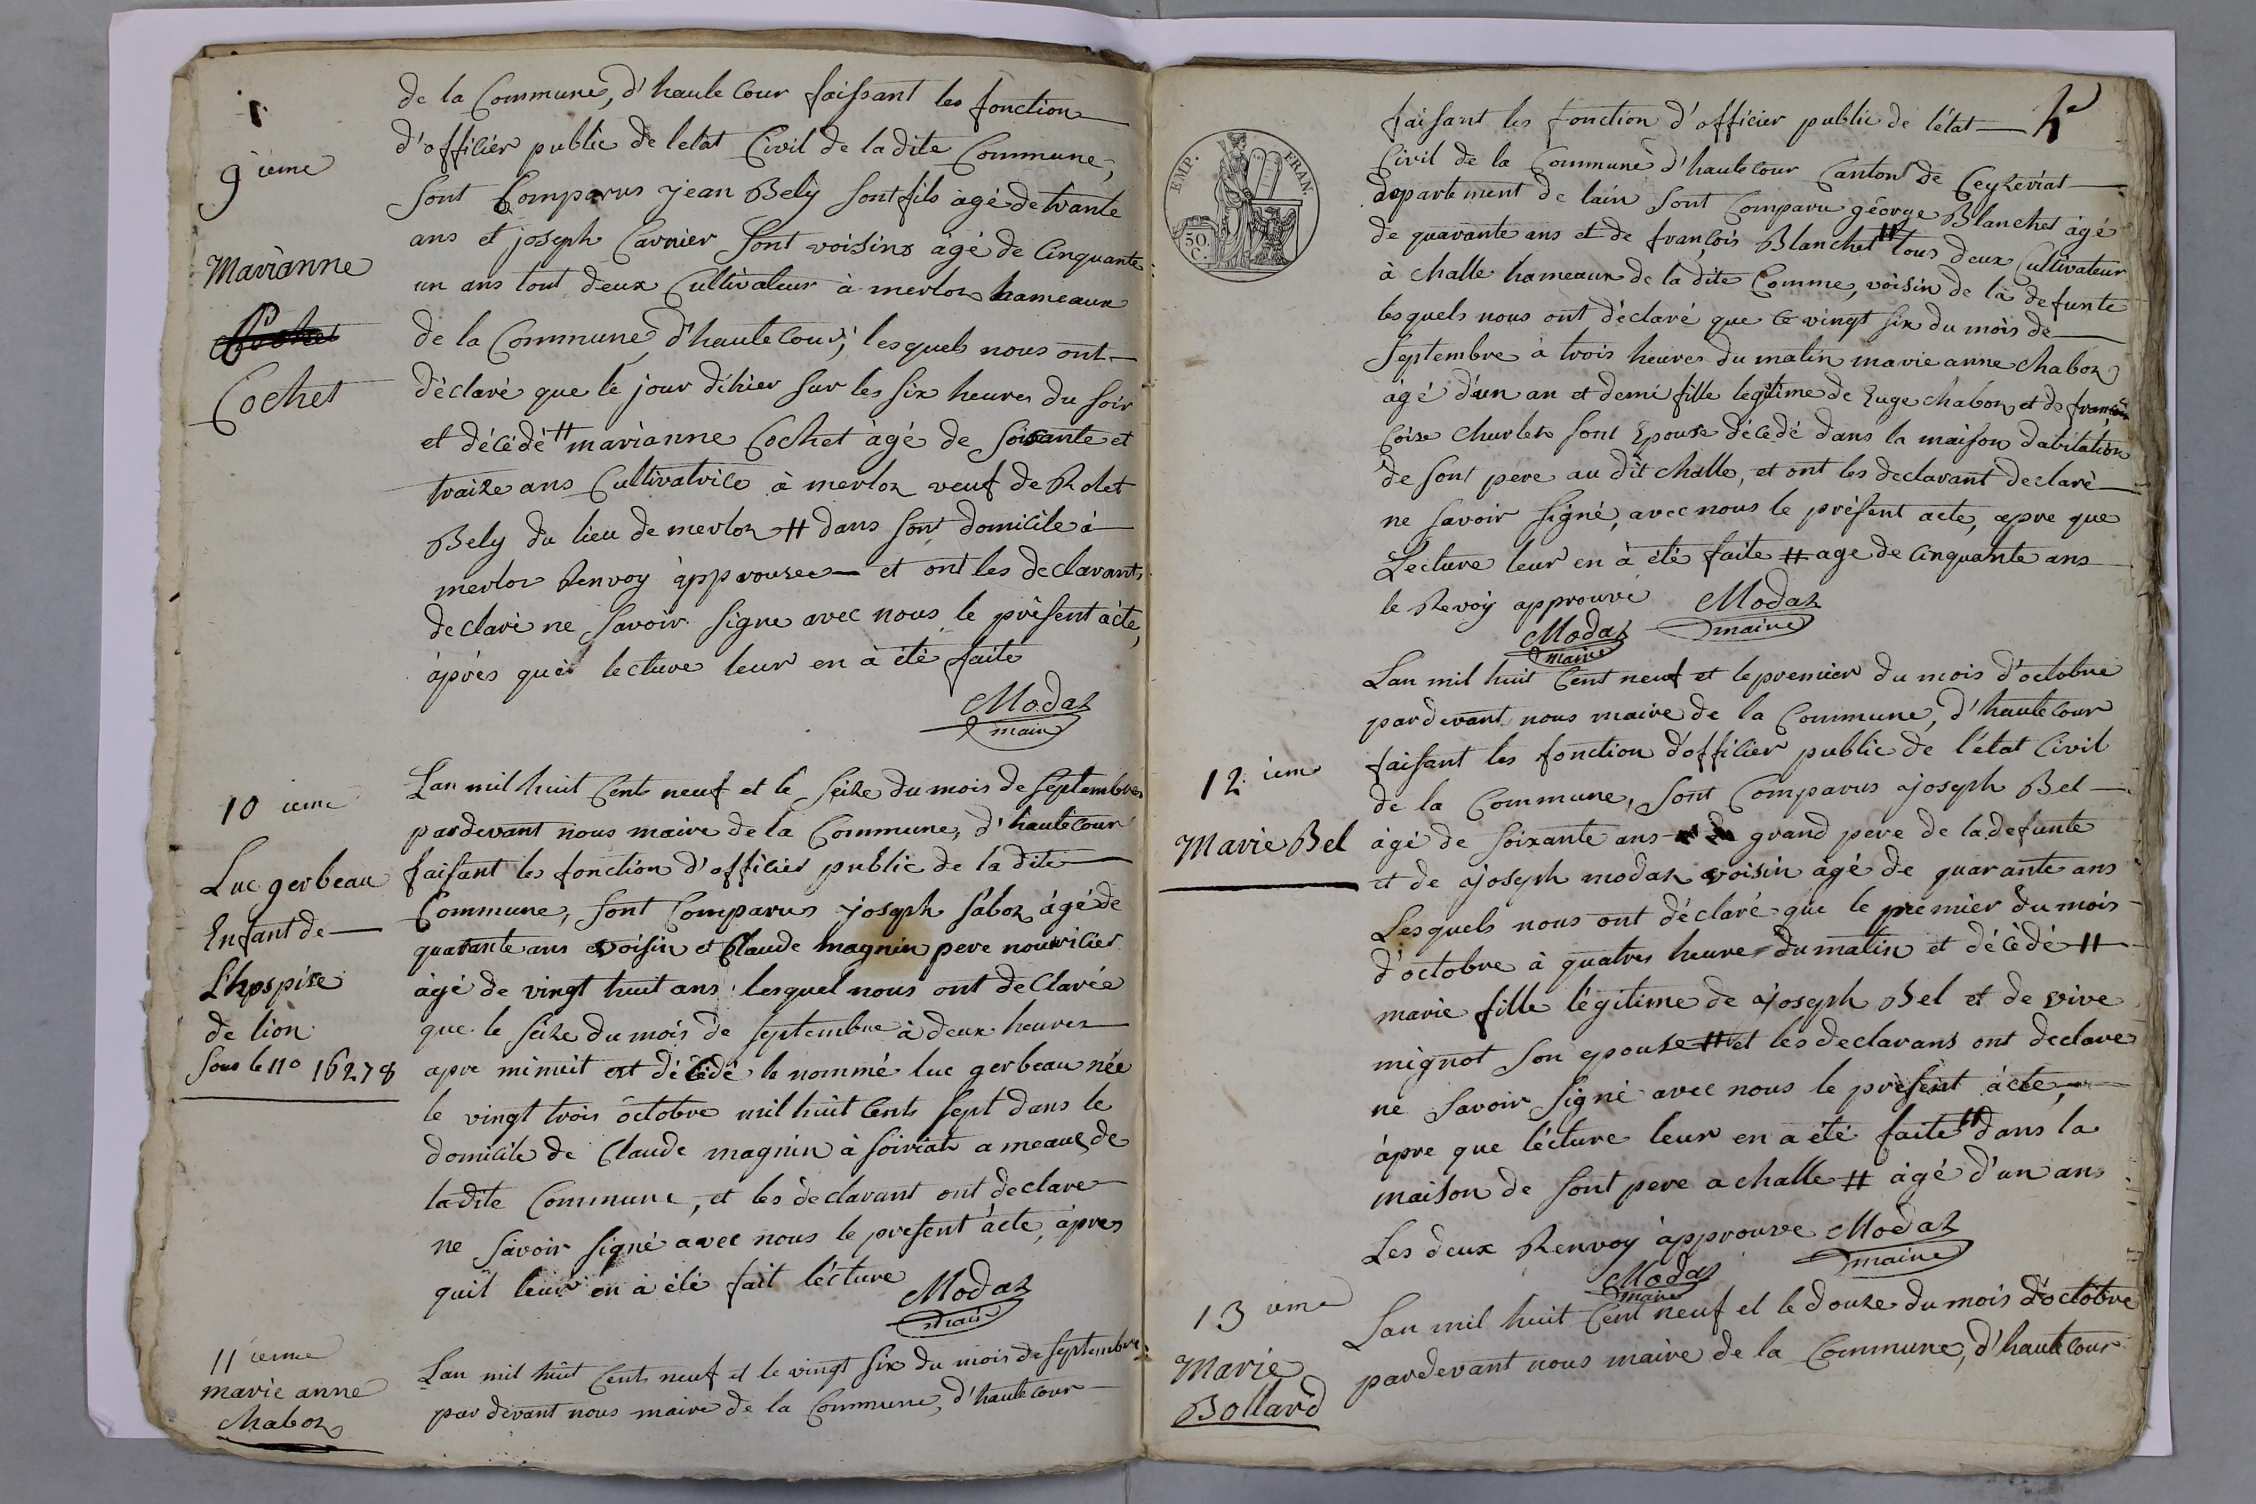 de la Commune, d'haute Cour faissant les fonction
d'officier public de letat Civil de la dite Commune,
9 ieme
Sont Comparus jean Bely sont fils àgé de trante
ans et joseph Carnier Sont voisins àgé de Cinquante
Marianne
un ans tout deux Cultivateur à merloz hameaux
de la Commune d'hautecour, lesquels nous ont
Cochet
déclaré que le jour d'hier sur les six heures du soir
et décédé # marianne Cochet àgé de Soixante et
traize ans Cultivatrice à merloz veuf de Rolet
Bely du lieu de merloz # dans son domicile à
merloz Renvoy approuvee et ont les declarants
declaré ne savoir signe avec nous le présent àcte,
àprés què lecture leur en à été faite
Modaz
maire
10 ieme
Lan mil huit Cents neuf et le Seize du mois de Septembre
pardevant nous maire de la Commune, d'hautecour
Luc gerbeau
faisant les fonction d'officier public de la dite
Enfant de
Commune, sont Comparus joseph saboz àgé de
Lhospise
quarante ans voisin et Claude magnin pere nourricier
de lion
àgé de vingt huit ans lesquel nous ont deClarée
Sous le no 16278
que le seize du mois de septembre à deux heures
apre minuit est décédé le nommé luc gerbeau née
le vingt trois octobre mil huit Cents sept dans le
domicile de Claude magnin à soiriat a meaux de
ladite Commune, et les déclarant ont declare
ne savoir signé avec nous le present àcte, àpres
quil leur en à été fait lécture
Modaz
maire
11 ieme
marie anne
chaboz
Lan mil huit Cents neuf et le vingt six du mois de Septembre
par devant nous maire de la Commune, d'hautecour
EMP. FRAN.
50.
C.
faisant les fonction d'officier public de létat
Civil de la Commune d'hautecour Canton de Ceyzeriat
departement de lain Sont Comparu géorge Blanchet àgé
de quarante ans et de françois Blanchet # tous deux Cultivateur
à challe hameaux de la dite Comme, voisin de la defunte
lesquels nous ont déclaré que le vingt six du mois de
Septembre à trois heures du matin marie anne chaboz
àgé d'un an et demi fille legitime de Euge chaboz et de françoise
Coise churlet sont Epouse décedé dans la maison dabitation
de sont pere au dit challe, et ont les declarant declaré
ne savoir signé, avec nous le présent acte, apre que
Lecture leur en à été faite # age de cinquante ans
le Revoy approuvé
Modaz
maire
Modaz
maire
Lan mil huit Cent neuf et le premier du mois d'octobre
pardevant nous maire de la Commune, d'hautecour
12 ieme
faisant les fonction d'officier public de l'état Civil
de la Commune, Sont Comparus joseph Bel
Marie Bel
àgé de soixante ans grand pere de la defunte
et de joseph modaz voisin agé de quarante ans
Lesquels nous ont déclaré que le premier du mois
d'octobre à quatres heures du matin et décédé #
marie fille légitime de joseph Bel et de vive
mignot son epouse # et les declarans ont declare
ne savoir signé avec nous le présent àcte,
àpre que lécture leur en a été faite # dans la
maison de sont pere a challe # àgé d'un ans
Les deux Renvoy àpprouve
Modaz
maire
Modaz
maire
13 ieme
Marie
Bollard
Lan mil huit Cent neuf et le douze du mois d'octobre
pardevant nous maire de la Commune, d'hautecour